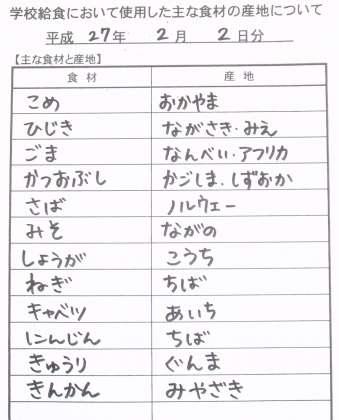 学校給食において使用した主な食材の産地について
平成 27年 2月 2日分
【主な食材と産地】
食材 産地
こめ おかやま
ひじき ながさき・みえ
ごま なんべい・アフリカ
かつおぶし かごしま、しずおか
さば ノルウェー
みそ ながの
しょうが こうち
ねぎ ちば
キャベツ あいち
にんじん ちば
きゅうり ぐんま
きんかん みやざき